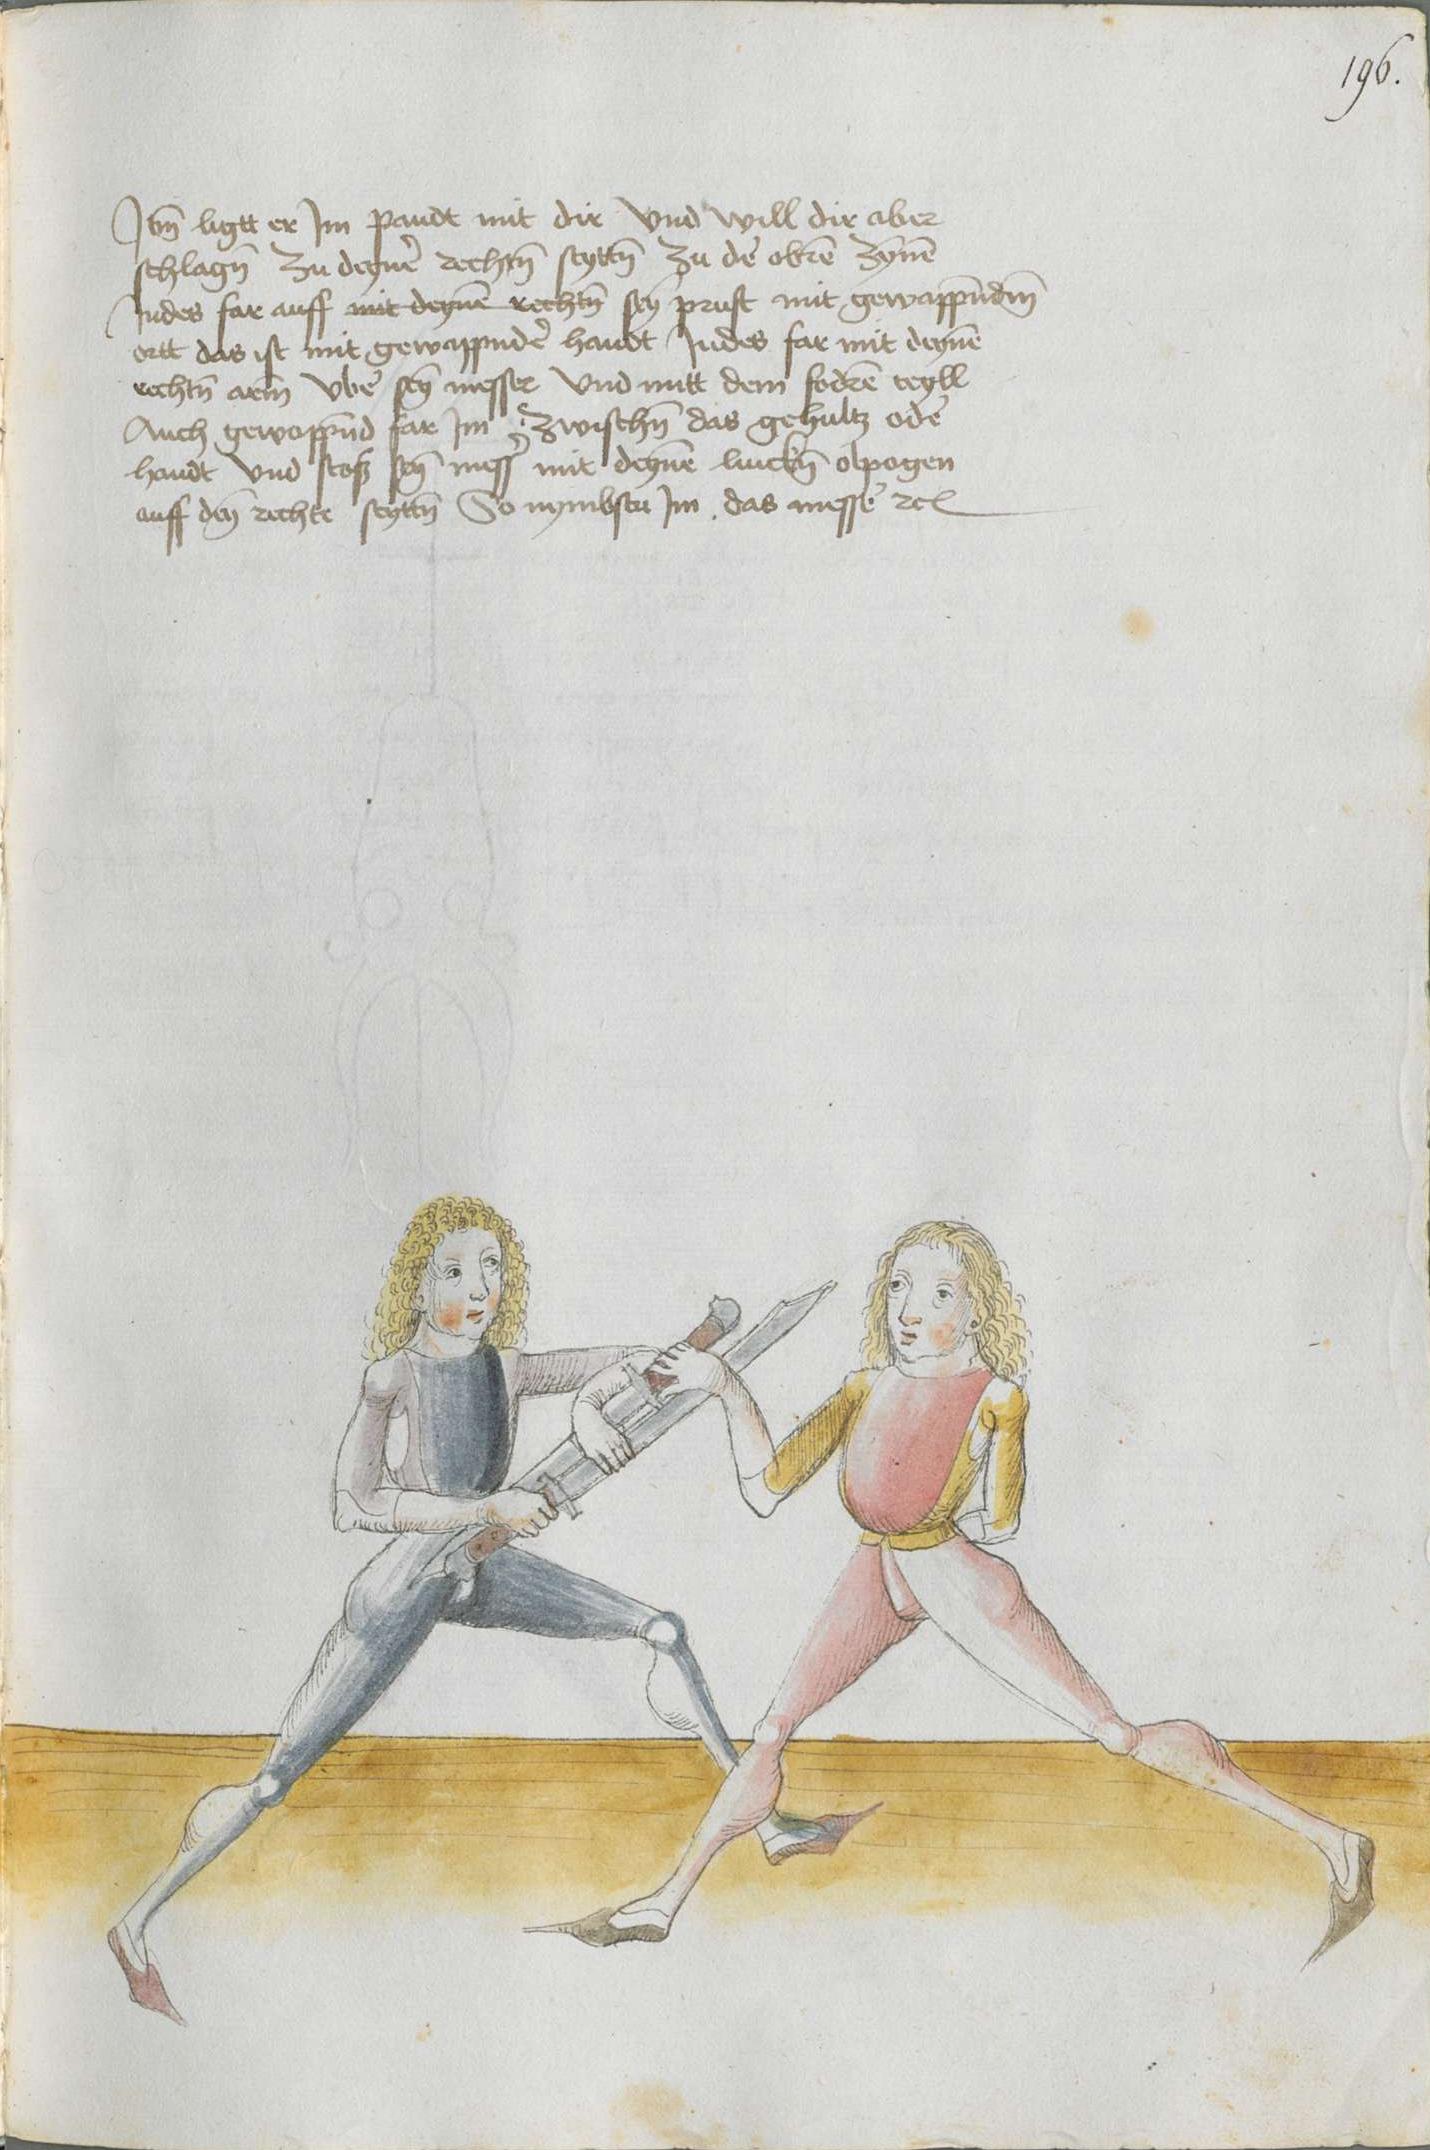 196.
Itm̄ ligtt er Im pandt mit dir Vnd will dir aber
schlagn̄ Zu deynē rechtn̄ seyttn̄ Zu dē obrē Zynnē
Indes far auff mit deynē rechtn̄ sey̅ prust mit gewappn̄dm̄
ortt das ist mit gewappndē handt Indes far mit deynē
rechtn̄ arm̄ Vbē sey̅ messer Vnd mitt dem fodrē teyll
Auch gewappn̄d far Im Zwischn̄ das gehultz odē
handt Vnd stoß sey̅ mess̄ mit deynē linckn̄ elpogen
auff dey̅ rechte seyttn̄ So nymbstu Im das messē rc